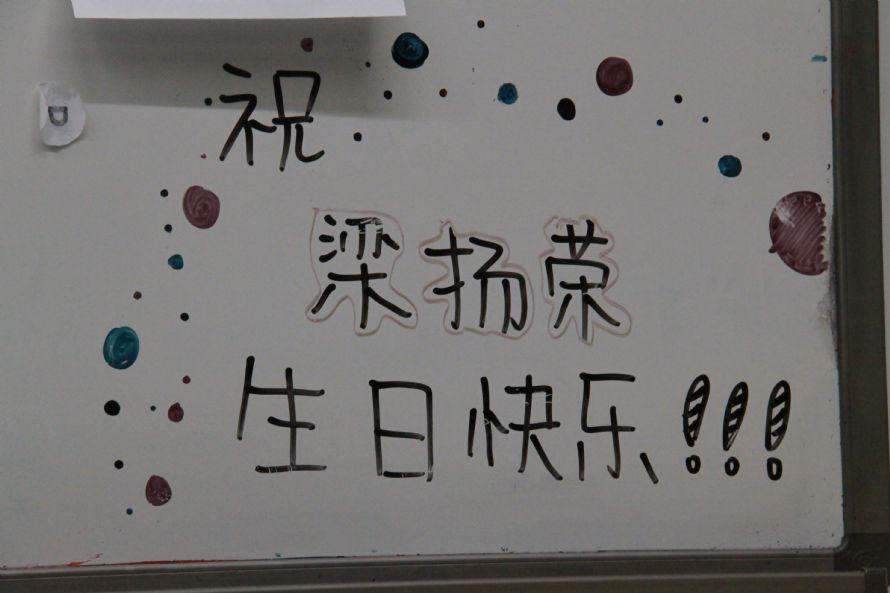 祝
梁扬荣
生日快乐!!!